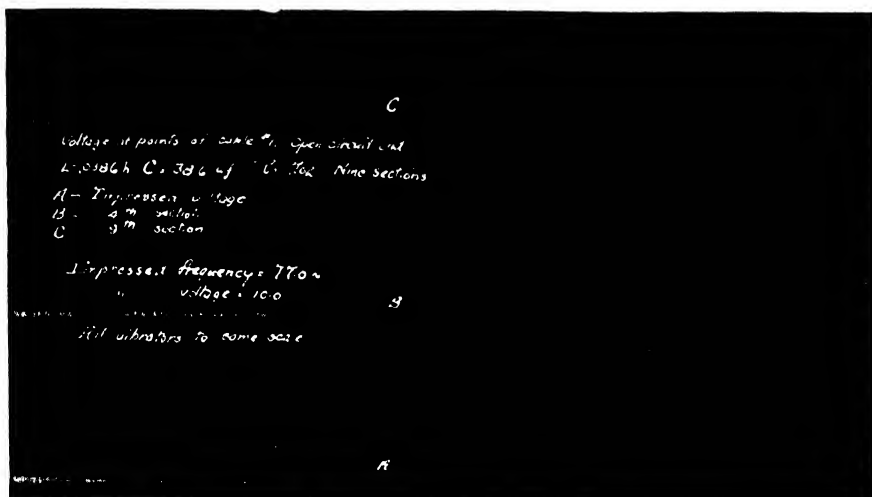 C
Voltage at points of cable #1. Open circuit end
L=.0386h C=.386 uf Nine sections
A - Impressed voltage
B - 4th section
C 9th section
Impressed frequency = 770 ~
" voltage = 10.0
B
All vibrators to same scale
A